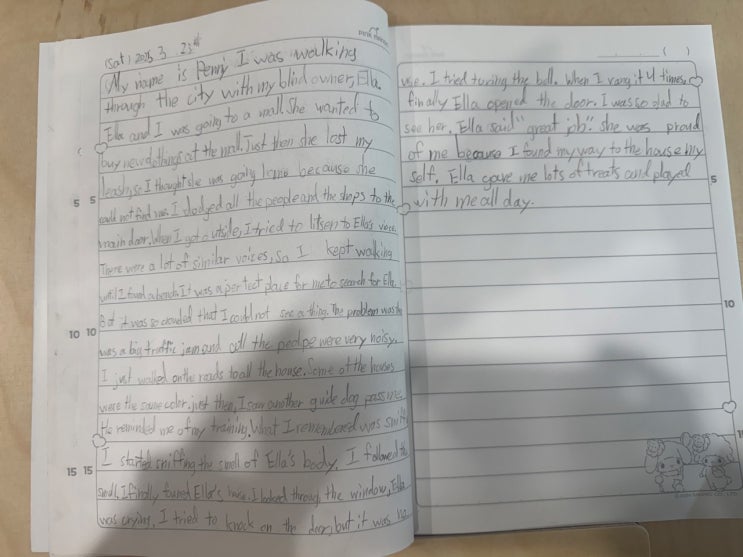 (Sat) 2025. 3. 23rd
My name is Penny I was walking
through the city with my blind owner, Ella.
Ella and I was going to a mall. She wanted to
buy new clothings at the mall. Just then she lost my
leash, so I thought she was going home because she
could not find me. I dodged all the people and the shops to the
main door. When I got outside, I tried to litsen to Ella's voice.
There were a lot of similar voices, so I kept walking
until I found a bench. It was a perfect place for me to search for Ella.
But it was so crowded that I could not see a thing. The problem was there
was a big traffic jam and all the pedpe were very noisy.
I just walked on the roads to all the house. Some of the houses
were the same color. just then, I saw another guide dog pass me.
He reminded me of my training. What I remembered was sniff
I started sniffing the smell of Ella's body. I followed the
smell. I finally found Ella's house. I looked through the window, Ella
was crying. I tried to knock on the door, but it was no
use. I tried turing the bell. When I rang it 4 times,
finally Ella opened the door. I was so glad to
see her. Ella said "great job". she was proud
of me because I found my way to the house my
self. Ella gave me lots of treats and played
with me all day.
( )
5 5
10 10
15 15
5
10